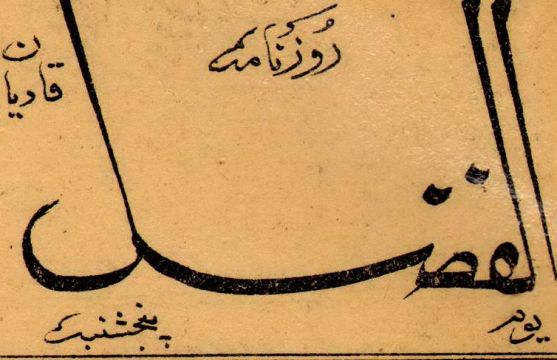 روزنامہ
قادیان
الفضل
یوم پنجشنبہ